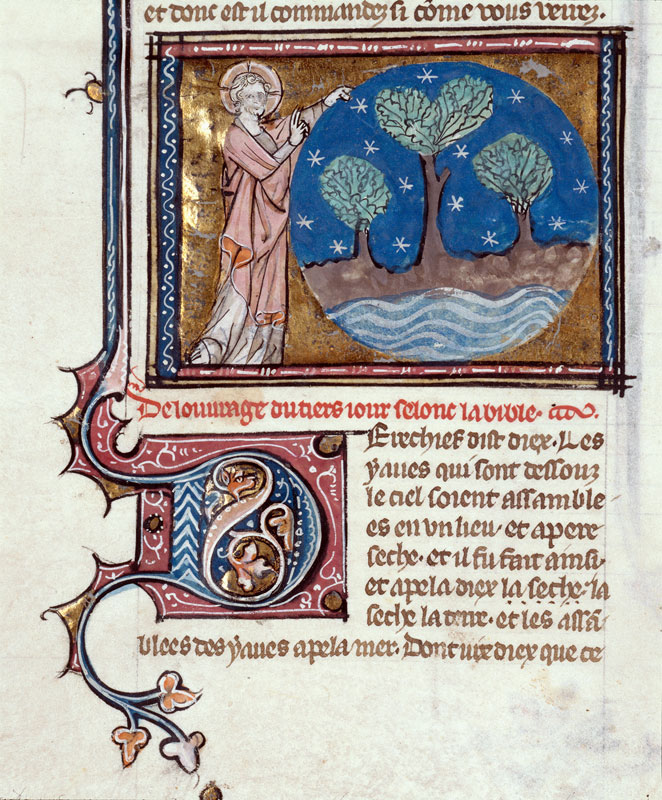 et donc est il commandez si cōme vous
De louurage du tiers iour selonc la bible.
DErechief dist diex. Les
yaues qui sont dessouz
le ciel soient assamble
es en vn lieu. et apere
seche. et il fu fait ainsi
et apela diex la seche. la
seche la terre. et les assā
blees des yaues apela mer. Dont diex que ce